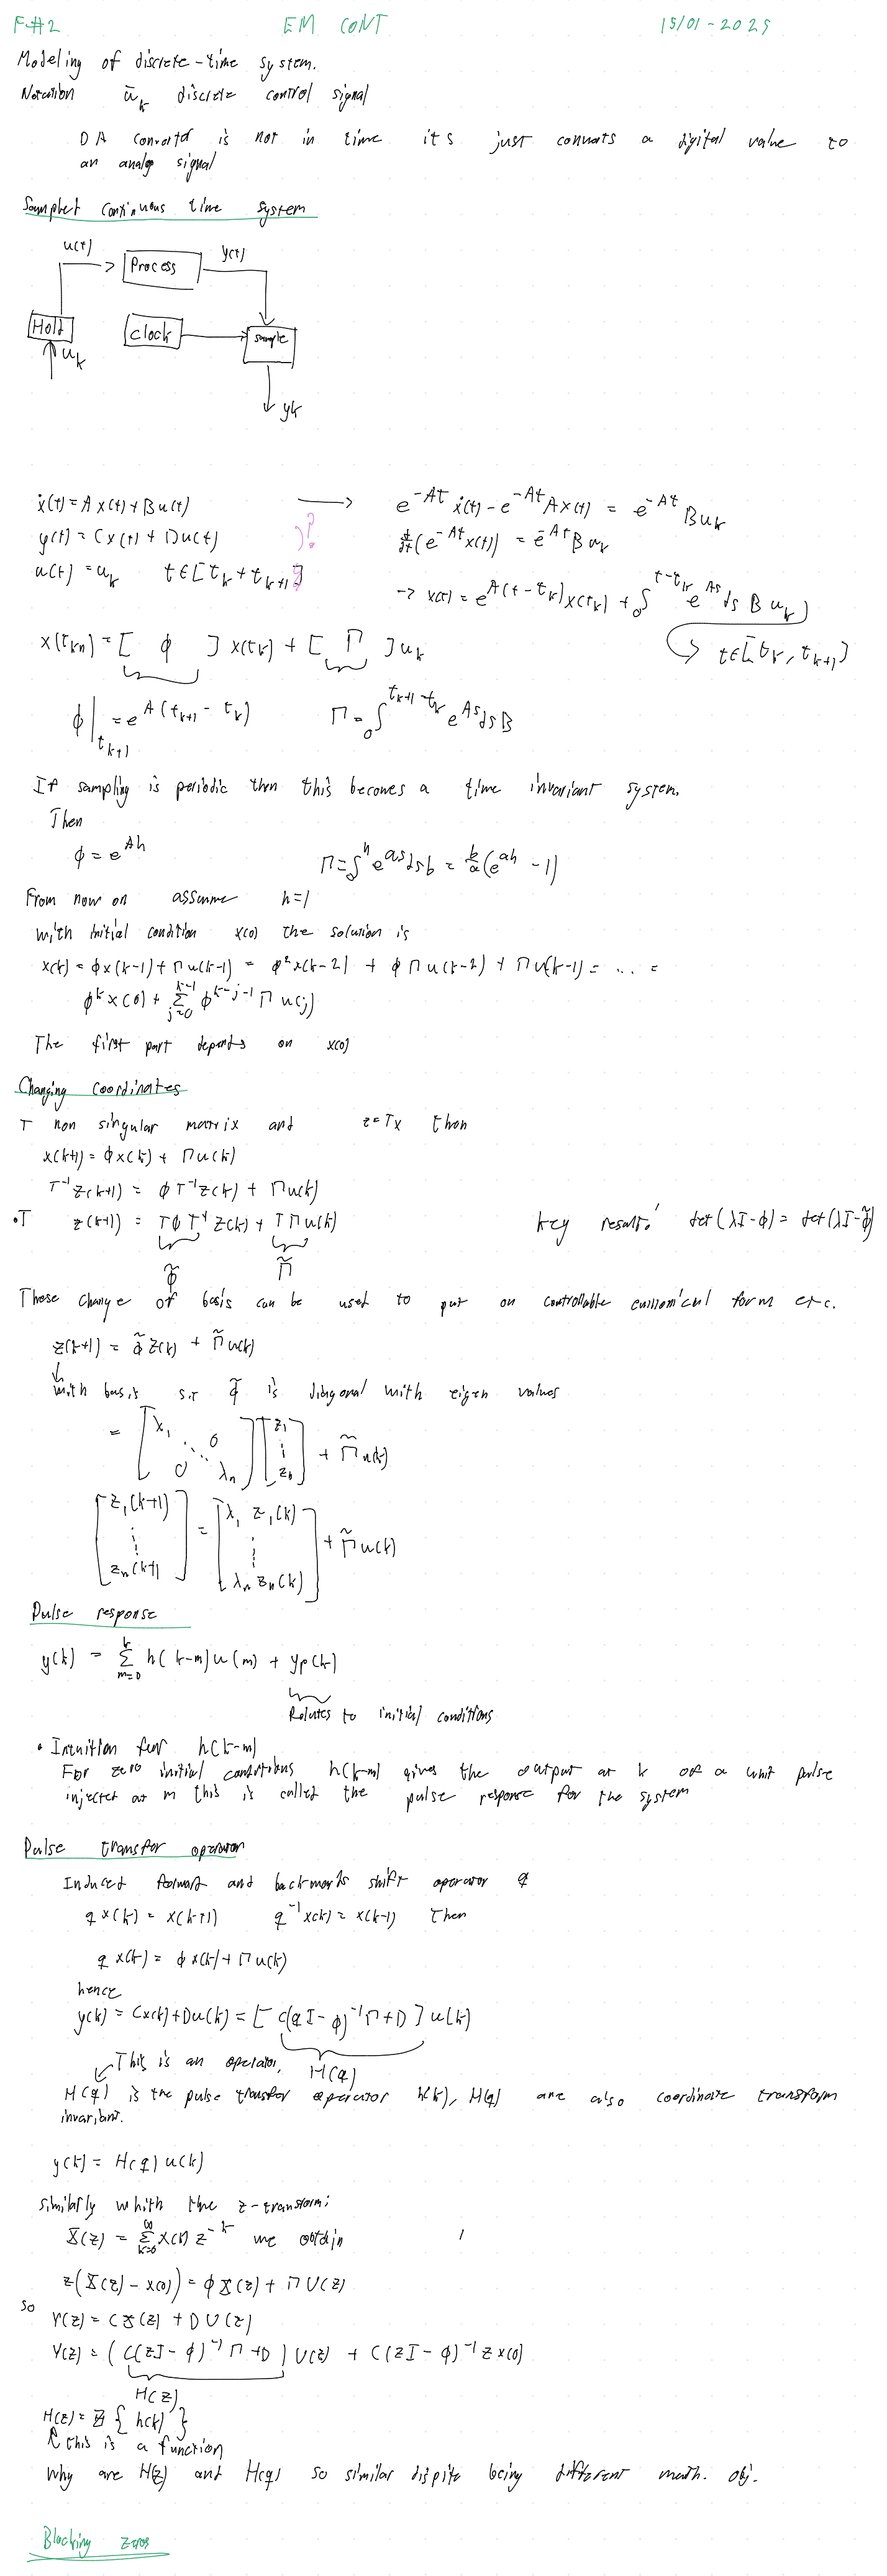 F#2 EM CONT 15/01-2025
Modeling of discrete-time system.
Notation ū_k discrete control signal
DA convertor is not in time its just converts a digital value to
an analog signal
Samplet continuous time system
u(t) y(t)
Process
Hold Clock sample
u_k
yk
ẋ(t) = A x(t) + B u(t) → e^{-At} ẋ(t) - e^{-At} A x(t) = e^{-At} B u_k
y(t) = C x(t) + D u(t) )? d/dt (e^{-At} x(t)) = e^{-At} B u_k
u(t) = u_k t ∈ [t_k + t_{k+1}]
→ x(t) = e^{A(t-t_k)} x(t_k) + ∫_0^{t-t_k} e^{As} ds B u_k
t ∈ [t_k, t_{k+1}]
x(t_{k+1}) = [ ϕ ] x(t_k) + [ Γ ] u_k
ϕ|_{t_{k+1}} = e^{A(t_{k+1} - t_k)} Γ = ∫_0^{t_{k+1}-t_k} e^{As} ds B
If sampling is periodic then this becomes a time invariant system.
Then
ϕ = e^{Ah} Γ = ∫_0^h e^{as} ds b = b/a (e^{ah} - 1)
From now on assume h=1
with initial condition x(0) the solution is
x(k) = ϕ x(k-1) + Γ u(k-1) = ϕ² x(k-2) + ϕ Γ u(k-2) + Γ u(k-1) = .... =
ϕ^k x(0) + Σ_{j=0}^{k-1} ϕ^{k-j-1} Γ u(j)
The first part depends on x(0)
Changing coordinates
T non singular matrix and z=Tx then
x(k+1) = ϕ x(k) + Γ u(k)
T^{-1} z(k+1) = ϕ T^{-1} z(k) + Γ u(k)
•T z(k+1) = T ϕ T^{-1} z(k) + T Γ u(k) key result: det(λI-ϕ) = det(λI-ϕ̃)
ϕ̃ Γ̃
These change of basis can be used to put on controllable cannonical form etc.
z(k+1) = ϕ̃ z(k) + Γ̃ u(k)
with basis s.t ϕ̃ is diagonal with eigen values
= [λ_1 ⋱ 0 0 λ_n] [z_1 ⋮ z_n] + Γ̃ u(k)
[z_1(k+1) ⋮ z_n(k+1)] = [λ_1 z_1(k) ⋮ λ_n z_n(k)] + Γ̃ u(k)
Pulse response
y(k) = Σ_{m=0}^{k} h(k-m) u(m) + y_p(k)
Relates to initial conditions
• Intuition for h(k-m)
For zero initial conditions h(k-m) gives the output at k of a unit pulse
injected at m this is called the pulse response for the system
Pulse transfer operator
Induced forward and backwards shift operator q
q x(k) = x(k+1) q^{-1} x(k) = x(k-1) Then
q x(k) = ϕ x(k) + Γ u(k)
hence
y(k) = C x(k) + D u(k) = [C(qI - ϕ)^{-1} Γ + D] u(k)
This is an operator, H(q)
H(q) is the pulse transfer operator h(k), H(q) are also coordinate transform
invariant.
y(k) = H(q) u(k)
similarly whith the z-transform:
X(z) = Σ_{k=0}^{∞} x(k) z^{-k} we obtain
z(X(z) - x(0)) = ϕ X(z) + Γ U(z)
so
Y(z) = C X(z) + D U(z)
Y(z) = (C(zI - ϕ)^{-1} Γ + D) U(z) + C(zI - ϕ)^{-1} z x(0)
H(z)
H(z) = Z { h(k) }
this is a function
why are H(z) and H(q) so similar dispite being different math. obj.
Blocking zeros